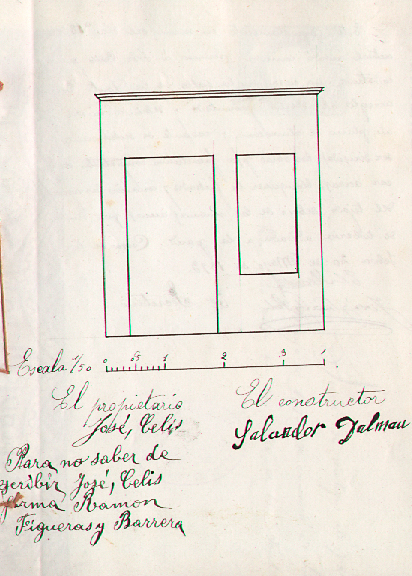 Escala 1/50 0 05 1 2 3
El propietario
José, Celis
El constructor
Salvador Dalmau
Para no saber de
escribir José, Celis
firma Ramon
Figueras y Barrera